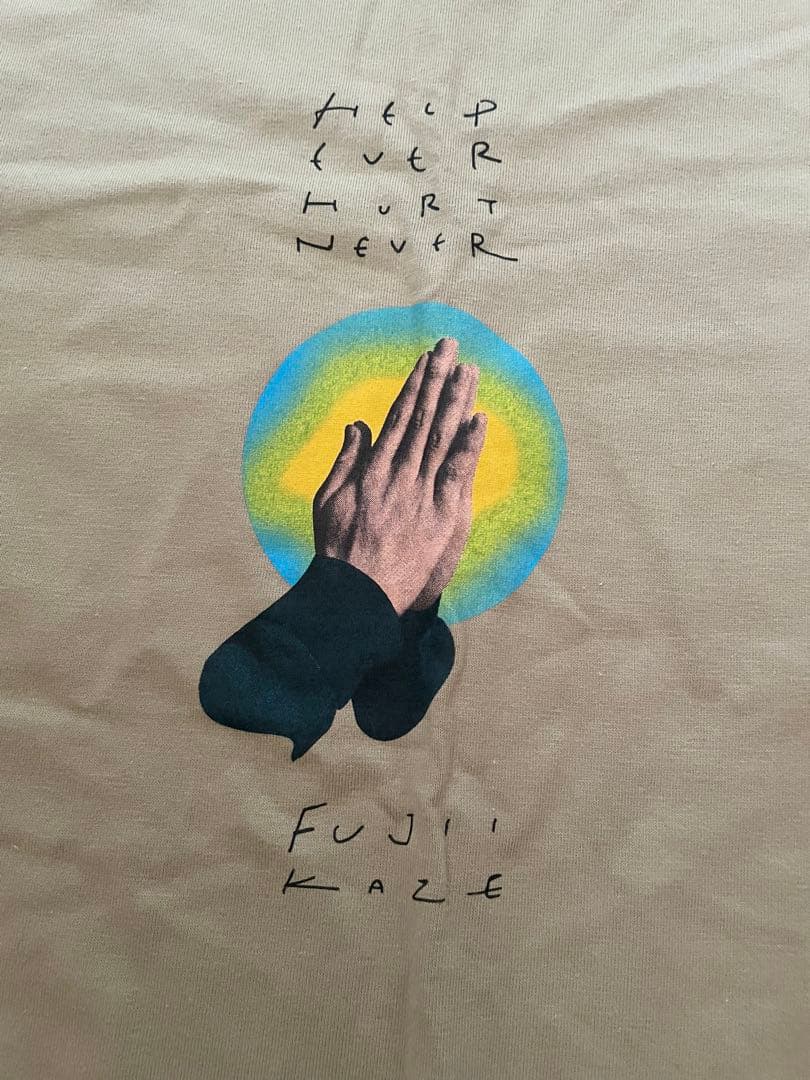 HELP
EVER
HURT
NEVER
FUJII
KAZE